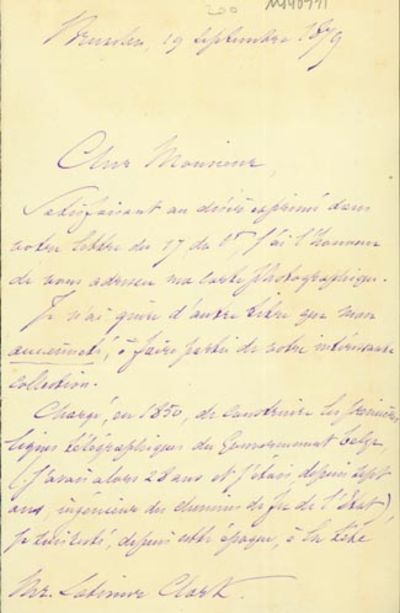 200 M140971
Bruxelles, 19 Septembre 1879
Cher Monsieur,
Satisfaisant au désir exprimé dans
votre lettre du 17 de Ct, j'ai l'honneur
de vous adresser ma carte photographique.
Je n'ai guère d'autre titre que mon
ancienneté, à faire partie de votre intéressante
collection.
Chargé, en 1850, de construire les premières
lignes télégraphiques du Gouvernement belge,
(j'avais alors 28 ans et j'étais depuis sept
ans, ingénieur du chemin de fer de l'Etat)
je suis resté, depuis cette époque, à la tête
Mr. Latimer Clark.